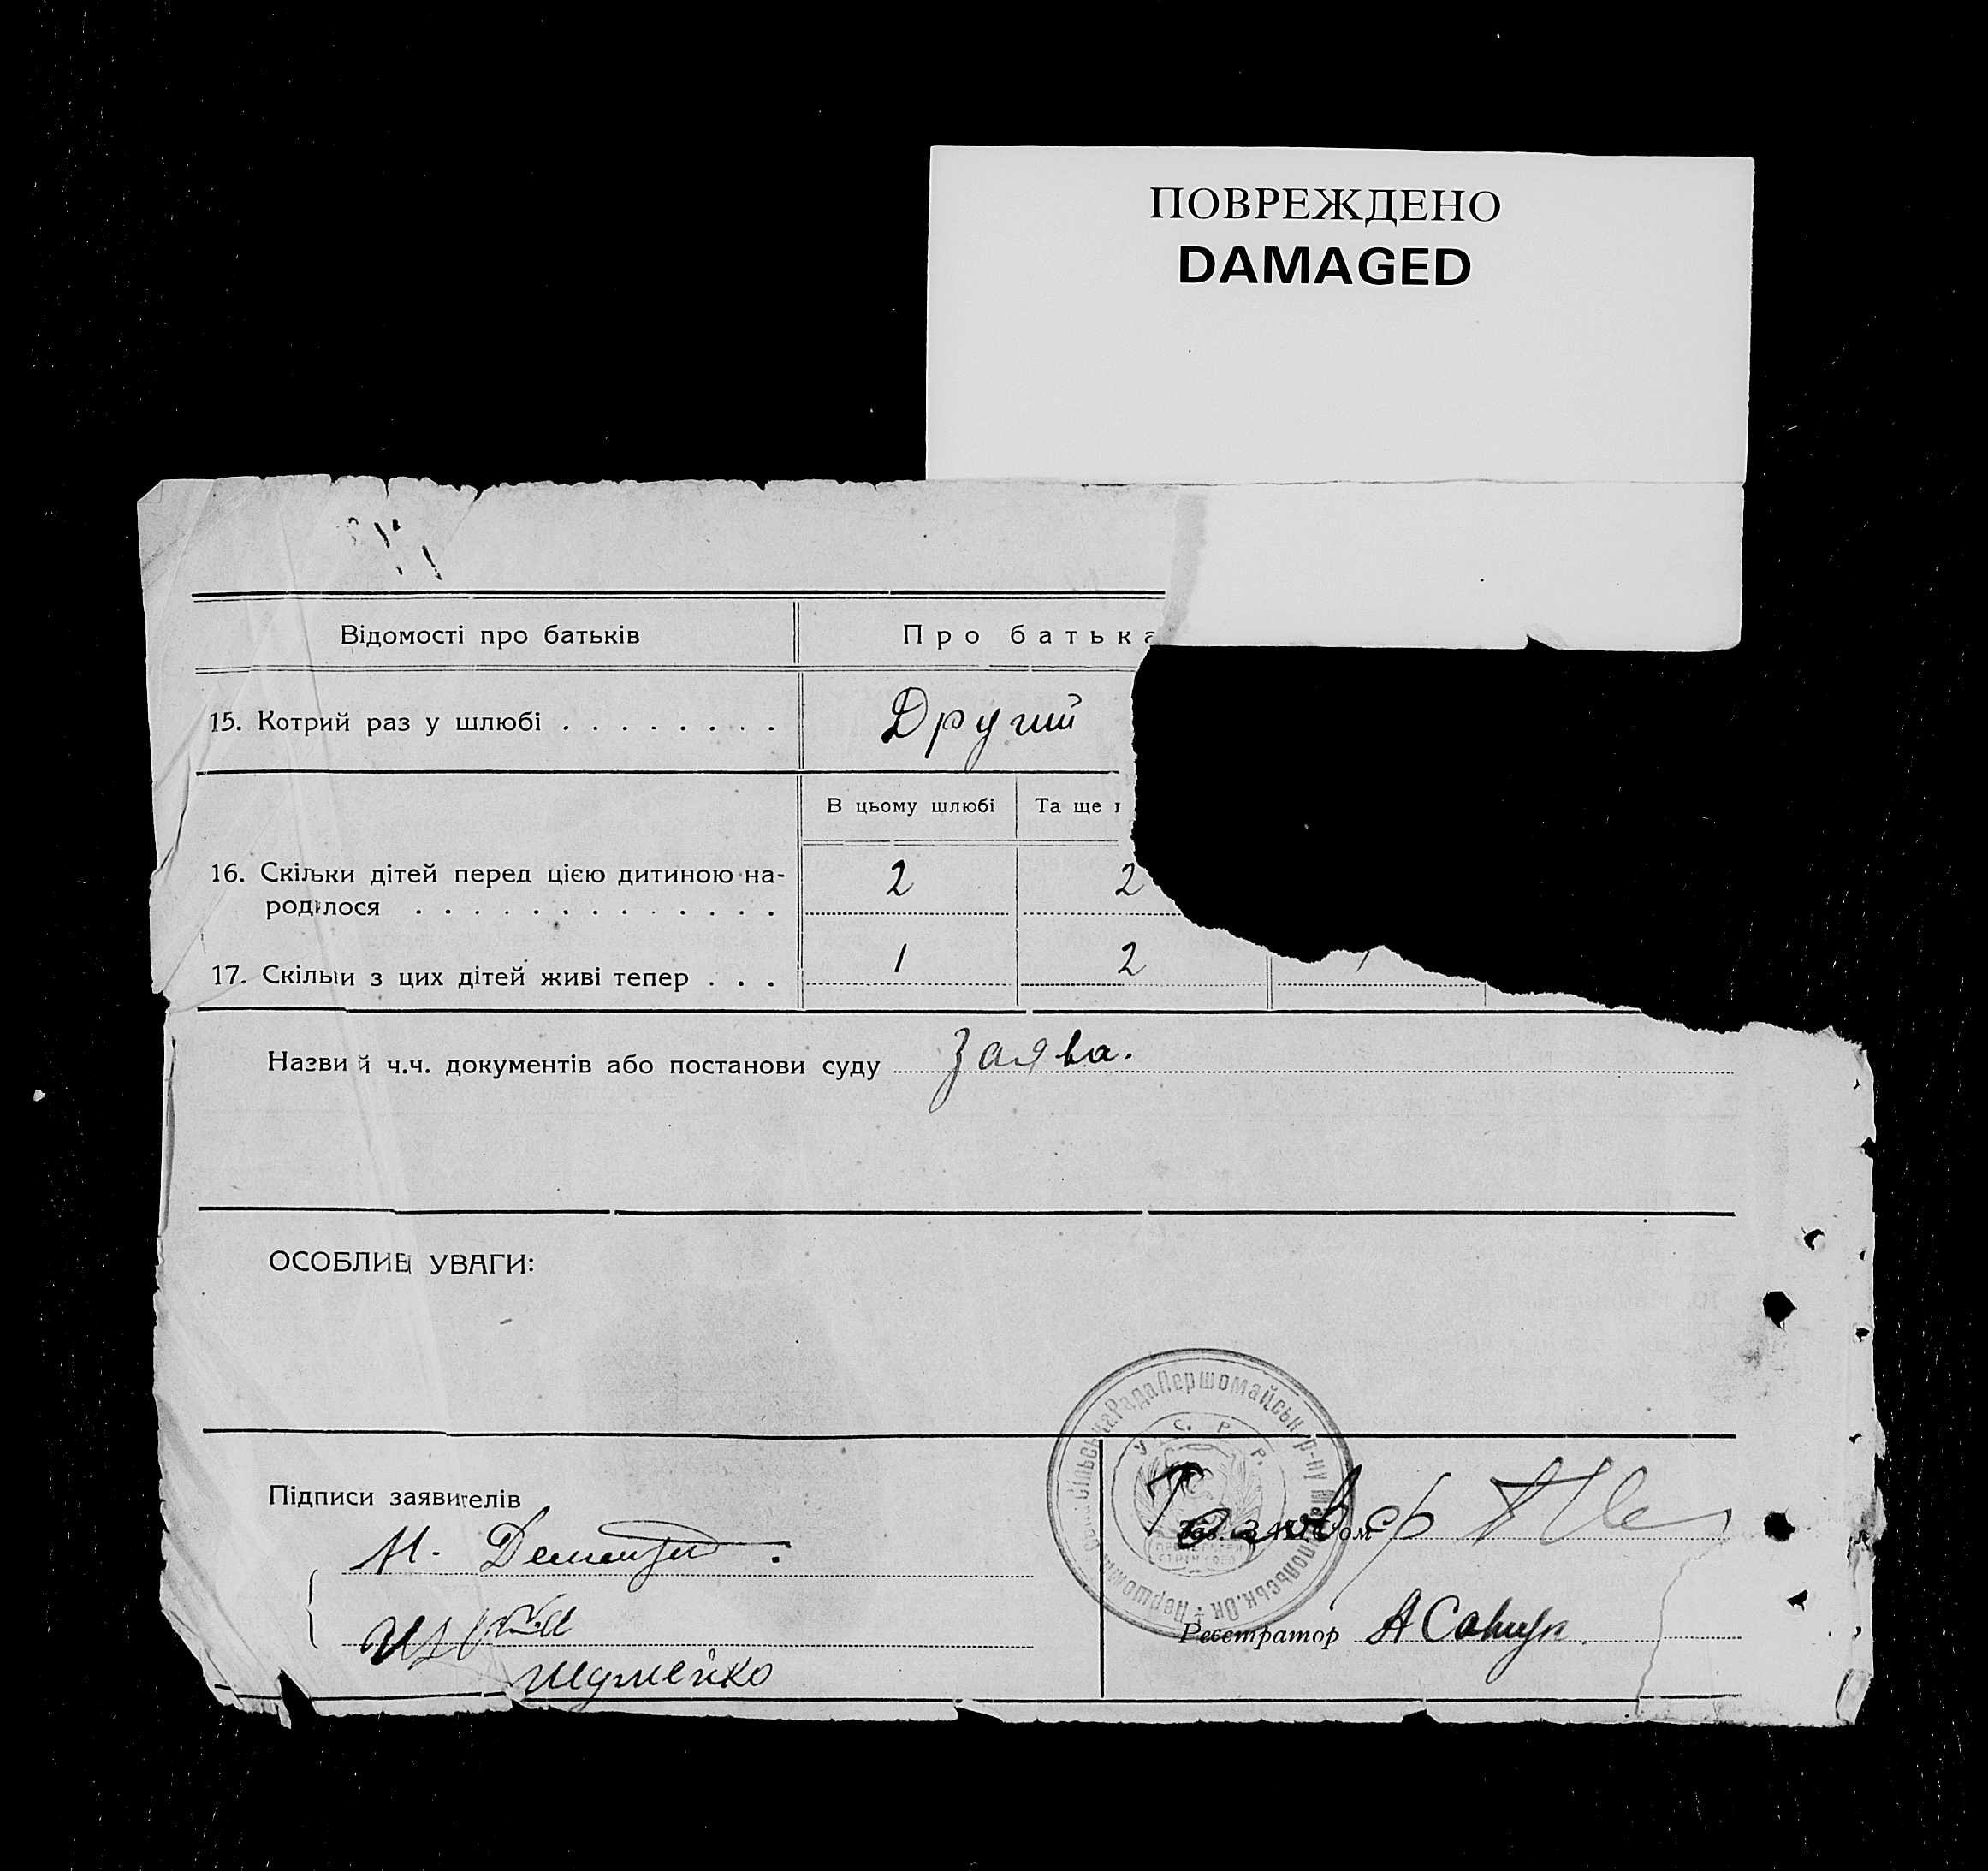 ПОВРЕЖДЕНО
DAMAGED
Відомості про батьків
Про батька
15. Котрий раз у шлюбі . . . . . . . .
Другий
В цьому шлюбі
Та ще
16. Скільки дітей перед цією дитиною на-
родилося . . . . . . . . . . . . .
2
2
17. Скільки з цих дітей живі тепер . . .
1
2
Назви й ч.ч. документів або постанови суду
Заява.
ОСОБЛИВІ УВАГИ:
Підписи заявителів
Шумейко
Сільська Рада Першомайськ. р-ну
У. С. Р. Р.
Реєстратор